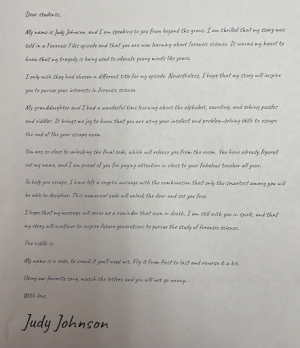 Dear students,
My name is Judy Johnson, and I am speaking to you from beyond the grave. I am thrilled that my story was
told in a Forensic Files episode and that you are now learning about forensic science. It warms my heart to
know that my tragedy is being used to educate young minds like yours.
I only wish they had chosen a different title for my episode. Nevertheless, I hope that my story will inspire
you to pursue your interests in forensic science.
My granddaughter and I had a wonderful time learning about the alphabet, counting, and solving puzzles
and riddles. It brings me joy to know that you are using your intellect and problem-solving skills to escape
the end of the year escape room.
You are so close to unlocking the final code, which will release you from the room. You have already figured
out my name, and I am proud of you for paying attention in class to your fabulous teacher all year.
To help you escape, I have left a cryptic message with the combination that only the smartest among you will
be able to decipher. This numerical code will unlock the door and set you free.
I hope that my message will serve as a reminder that even in death, I am still with you in spirit, and that
my story will continue to inspire future generations to pursue the study of forensic science.
The riddle is:
My name is a code, to crack it you'll need wit. Flip it from first to last and reverse it a bit.
Using our favorite song, match the letters and you will not go wrong.
With love,
Judy Johnson